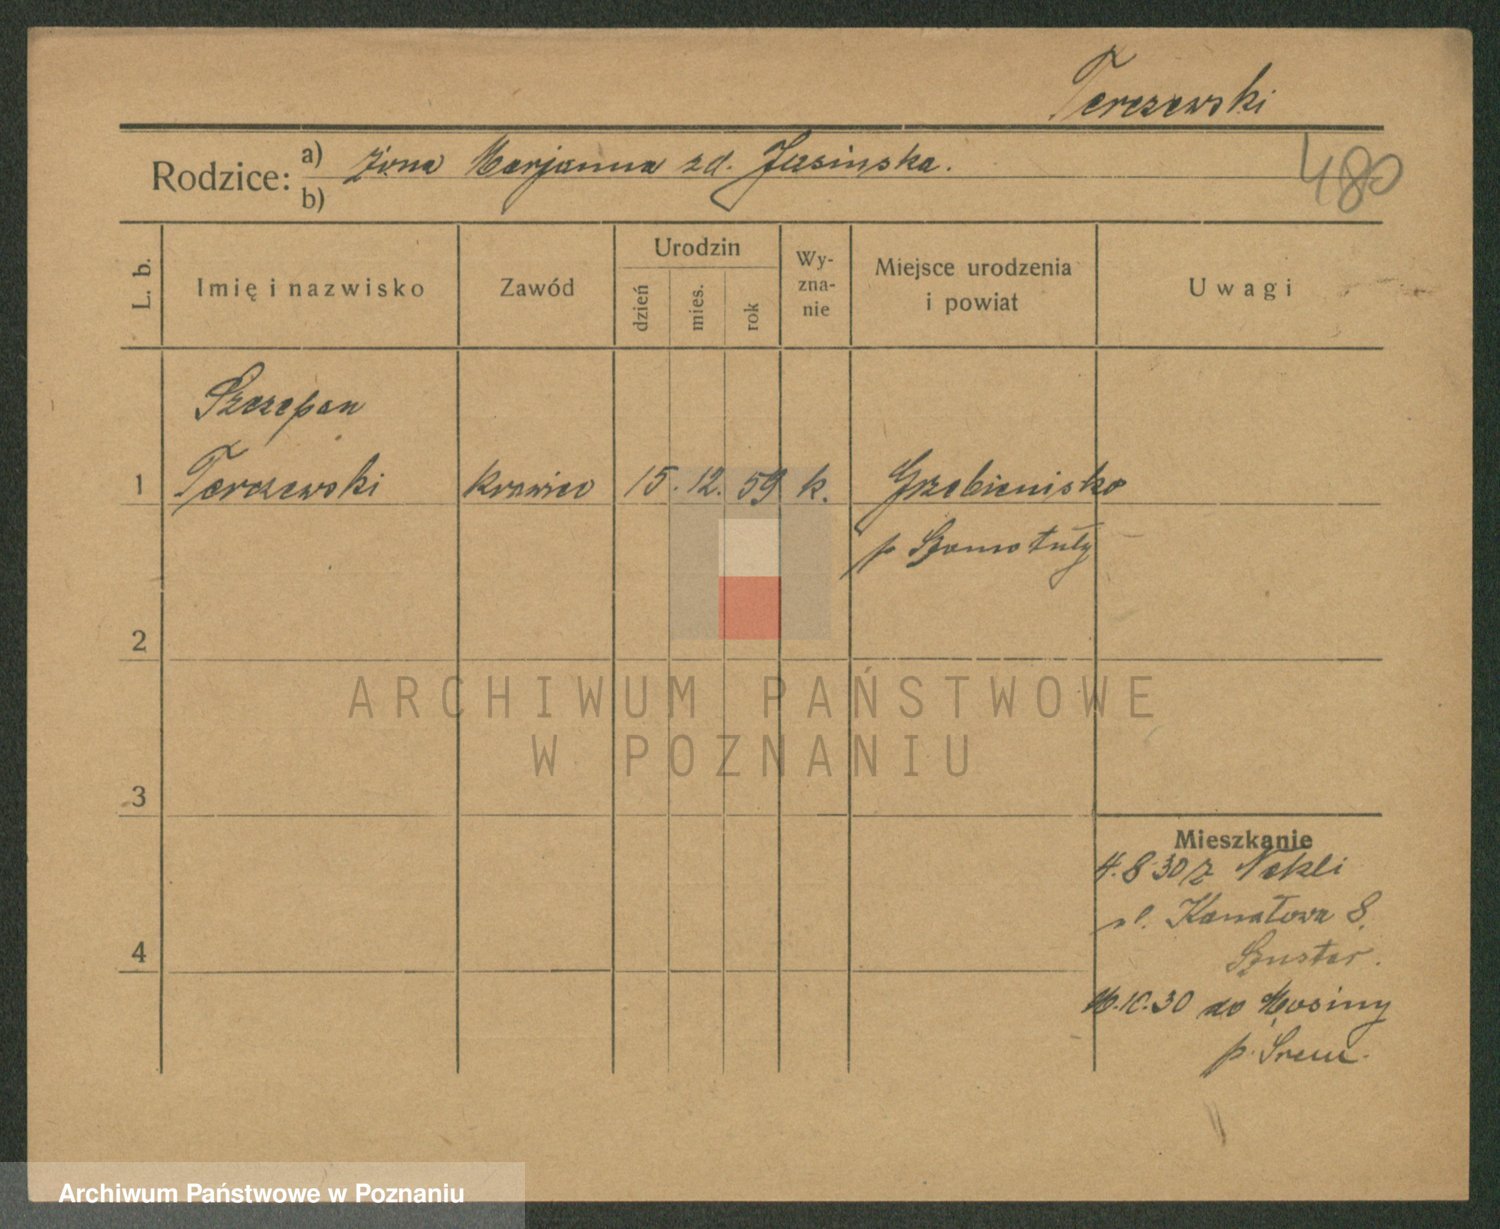 Terczewski
480
Rodzice: a) żona Marjanna zd. Jasińska.
b)
L. b.
Imię i nazwisko
Zawód
Urodzin
dzień
mies.
rok
Wy-
zna-
nie
Miejsce urodzenia
i powiat
Uwagi
Szczepan
1 Terczewski krawiec 15. 12. 59 k. Grzebienisko
p Szamotuły
2
ARCHIWUM PAŃSTWOWE
W POZNANIU
3
Mieszkanie
4.8.30 z Nekli
ul. Kanałowa 8.
Szuster.
4
10.30 do Mosiny
p. Śrem.
Archiwum Państwowe w Poznaniu